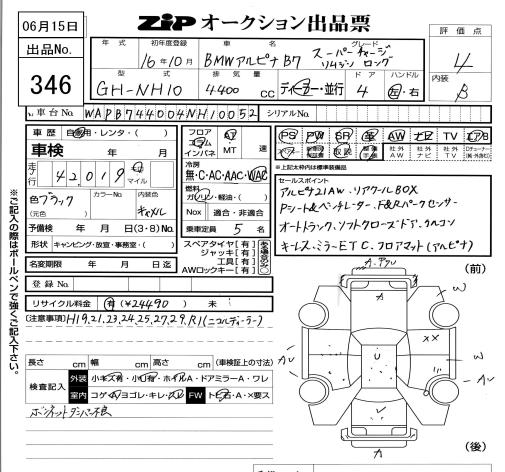 06月15日
ZiP オークション出品票
出品No.
346
年式 初年度登録 車名 グレード
16年10月 BMWアルピナB7 スーパーチャージ リムジン ロング
型式 排気量 ドア ハンドル
GH-NH10 4400 CC ディーラー・並行 4 左・右
評価点
4
内装
B
車台No. WAPB744004NH10052 シリアルNo.
車歴 自家用・レンタ・( )
車検 年 月
走行 42,019 km マイル
色 ブラック
(元色)
カラーNo. 内装色
キャメル
予備検 年 月 日(3・8)No.
形状 キャンピング・放宣・事務室・( )
名変期限 年 月 日 迄
登録No.
フロア コラム インパネ
AT
MT 速
冷房
無・C・AC・AAC・WAC
燃料
ガソリン・軽油・( )
Nox 適合・非適合
乗車定員 5 名
スペアタイヤ[有]
ジャッキ[有]
工具[有]
AWロックキー[有]
PS PW SR 革 AW ナビ TV エアB
社外AW 社外ナビ 社外TV
※上記太わくは標準装備品
セールスポイント
アルピナ21AW、リアクールBOX
Pシート&ベンチレーター、F&Rパークセンサー
オートトランク、ソフトクローズドア、クルコン
キーレス、ミラーETC、フロアマット(アルピナ)
リサイクル料金 有(¥24490) 未
(注意事項) H19,21,23,24,25,27,29,R1(ニコルディーラー)
長さ cm 幅 cm 高さ cm (車検証上の寸法)
検査記入 外装 小キズ有・小凹有・ホイルA・ドアミラーA・ワレ
室内 コゲ・A・ヨゴレ・キレ・スレ FW トビ石・A・×要ス
ボンネットダンパー不良
※ご記入の際はボールペンで強くご記入下さい。
(前)
A
W
××
W
U
(後)